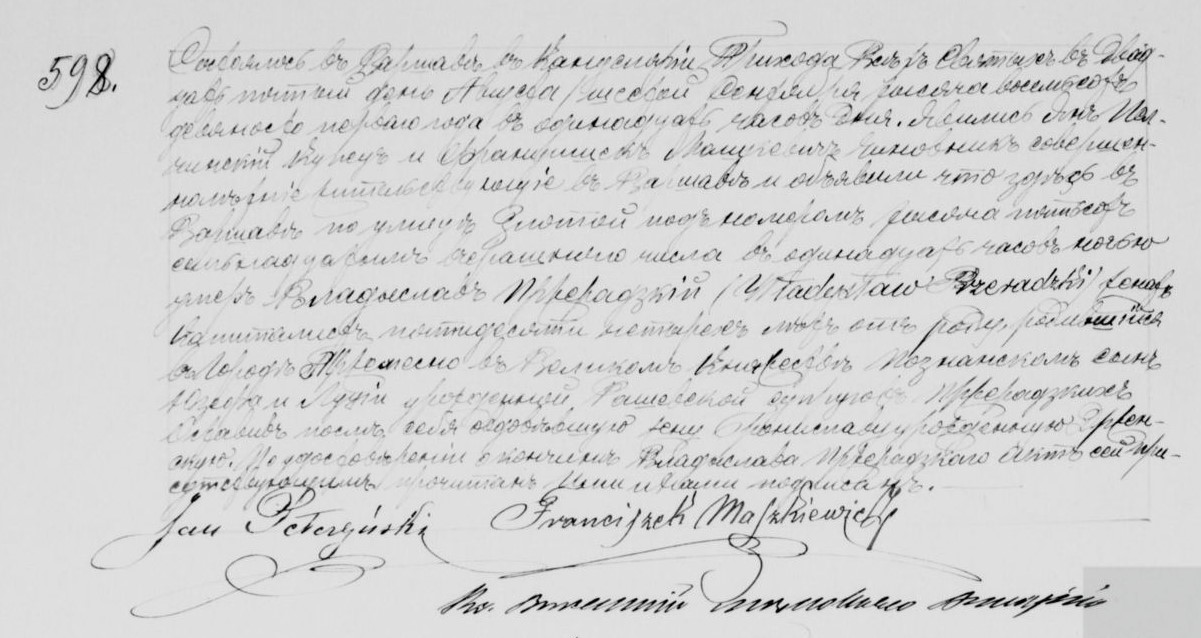 598.
Состоялось въ Варшавѣ въ Канцеляріи Прихода Всѣхъ Святыхъ въ Двад-
цать пятый день Августа /шестой Сентября/ тысяча восемьсотъ
девяносто перваго года въ одинадцать часовъ дня. Явились Янъ
Купецъ и Францишекъ Машкевичъ чиновникъ совершен-
нолѣтніе жительствующіе въ Варшавѣ и объявили что здѣсь въ
Варшавѣ по улицѣ Злотой подъ номеромъ тысяча пятьсотъ
вчерашняго числа въ одинадцать часовъ ночью
умеръ Владыславъ Пржерадзкій /Władysław Przeradzki/ женатъ
капиталистъ пятидесяти четырехъ лѣтъ отъ роду, родившійся
въ городѣ Тржемесно въ Великомъ Княжествѣ Познанскомъ сынъ
Іозефа и Луціи урожденной Рашевской супруговъ Пржерадзкихъ
Оставивъ послѣ себя овдовѣвшую жену Брониславу урожденную
скую. По удостовѣреніи о кончинѣ Владыслава Пржерадзкаго Актъ сей при-
сутствующимъ прочитанъ Нами и Ими подписанъ.
Jan Franciszek Maszkiewicz
Кс.